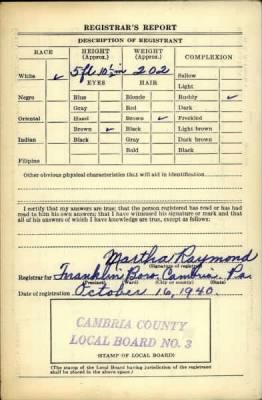 REGISTRAR'S REPORT
DESCRIPTION OF REGISTRANT
RACE HEIGHT (Approx.) WEIGHT (Approx.) COMPLEXION
White ✓ 5 ft 10½ in 202 Sallow
EYES HAIR Light
Negro Blue Blonde Ruddy ✓
Gray Red Dark
Oriental Hazel Brown ✓ Freckled
Brown ✓ Black Light brown
Indian Black Gray Dark brown
Bald Black
Filipino
Other obvious physical characteristics that will aid in identification
I certify that my answers are true; that the person registered has read or has had
read to him his own answers; that I have witnessed his signature or mark and that
all of his answers of which I have knowledge are true, except as follows:
Martha Raymond
(Signature of registrar)
Registrar for Franklin Boro. Cambria. Pa.
(Precinct) (Ward) (City or county) (State)
Date of registration October 16, 1940.
CAMBRIA COUNTY
LOCAL BOARD NO. 3
(STAMP OF LOCAL BOARD)
(The stamp of the Local Board having jurisdiction of the registrant
shall be placed in the above space.)